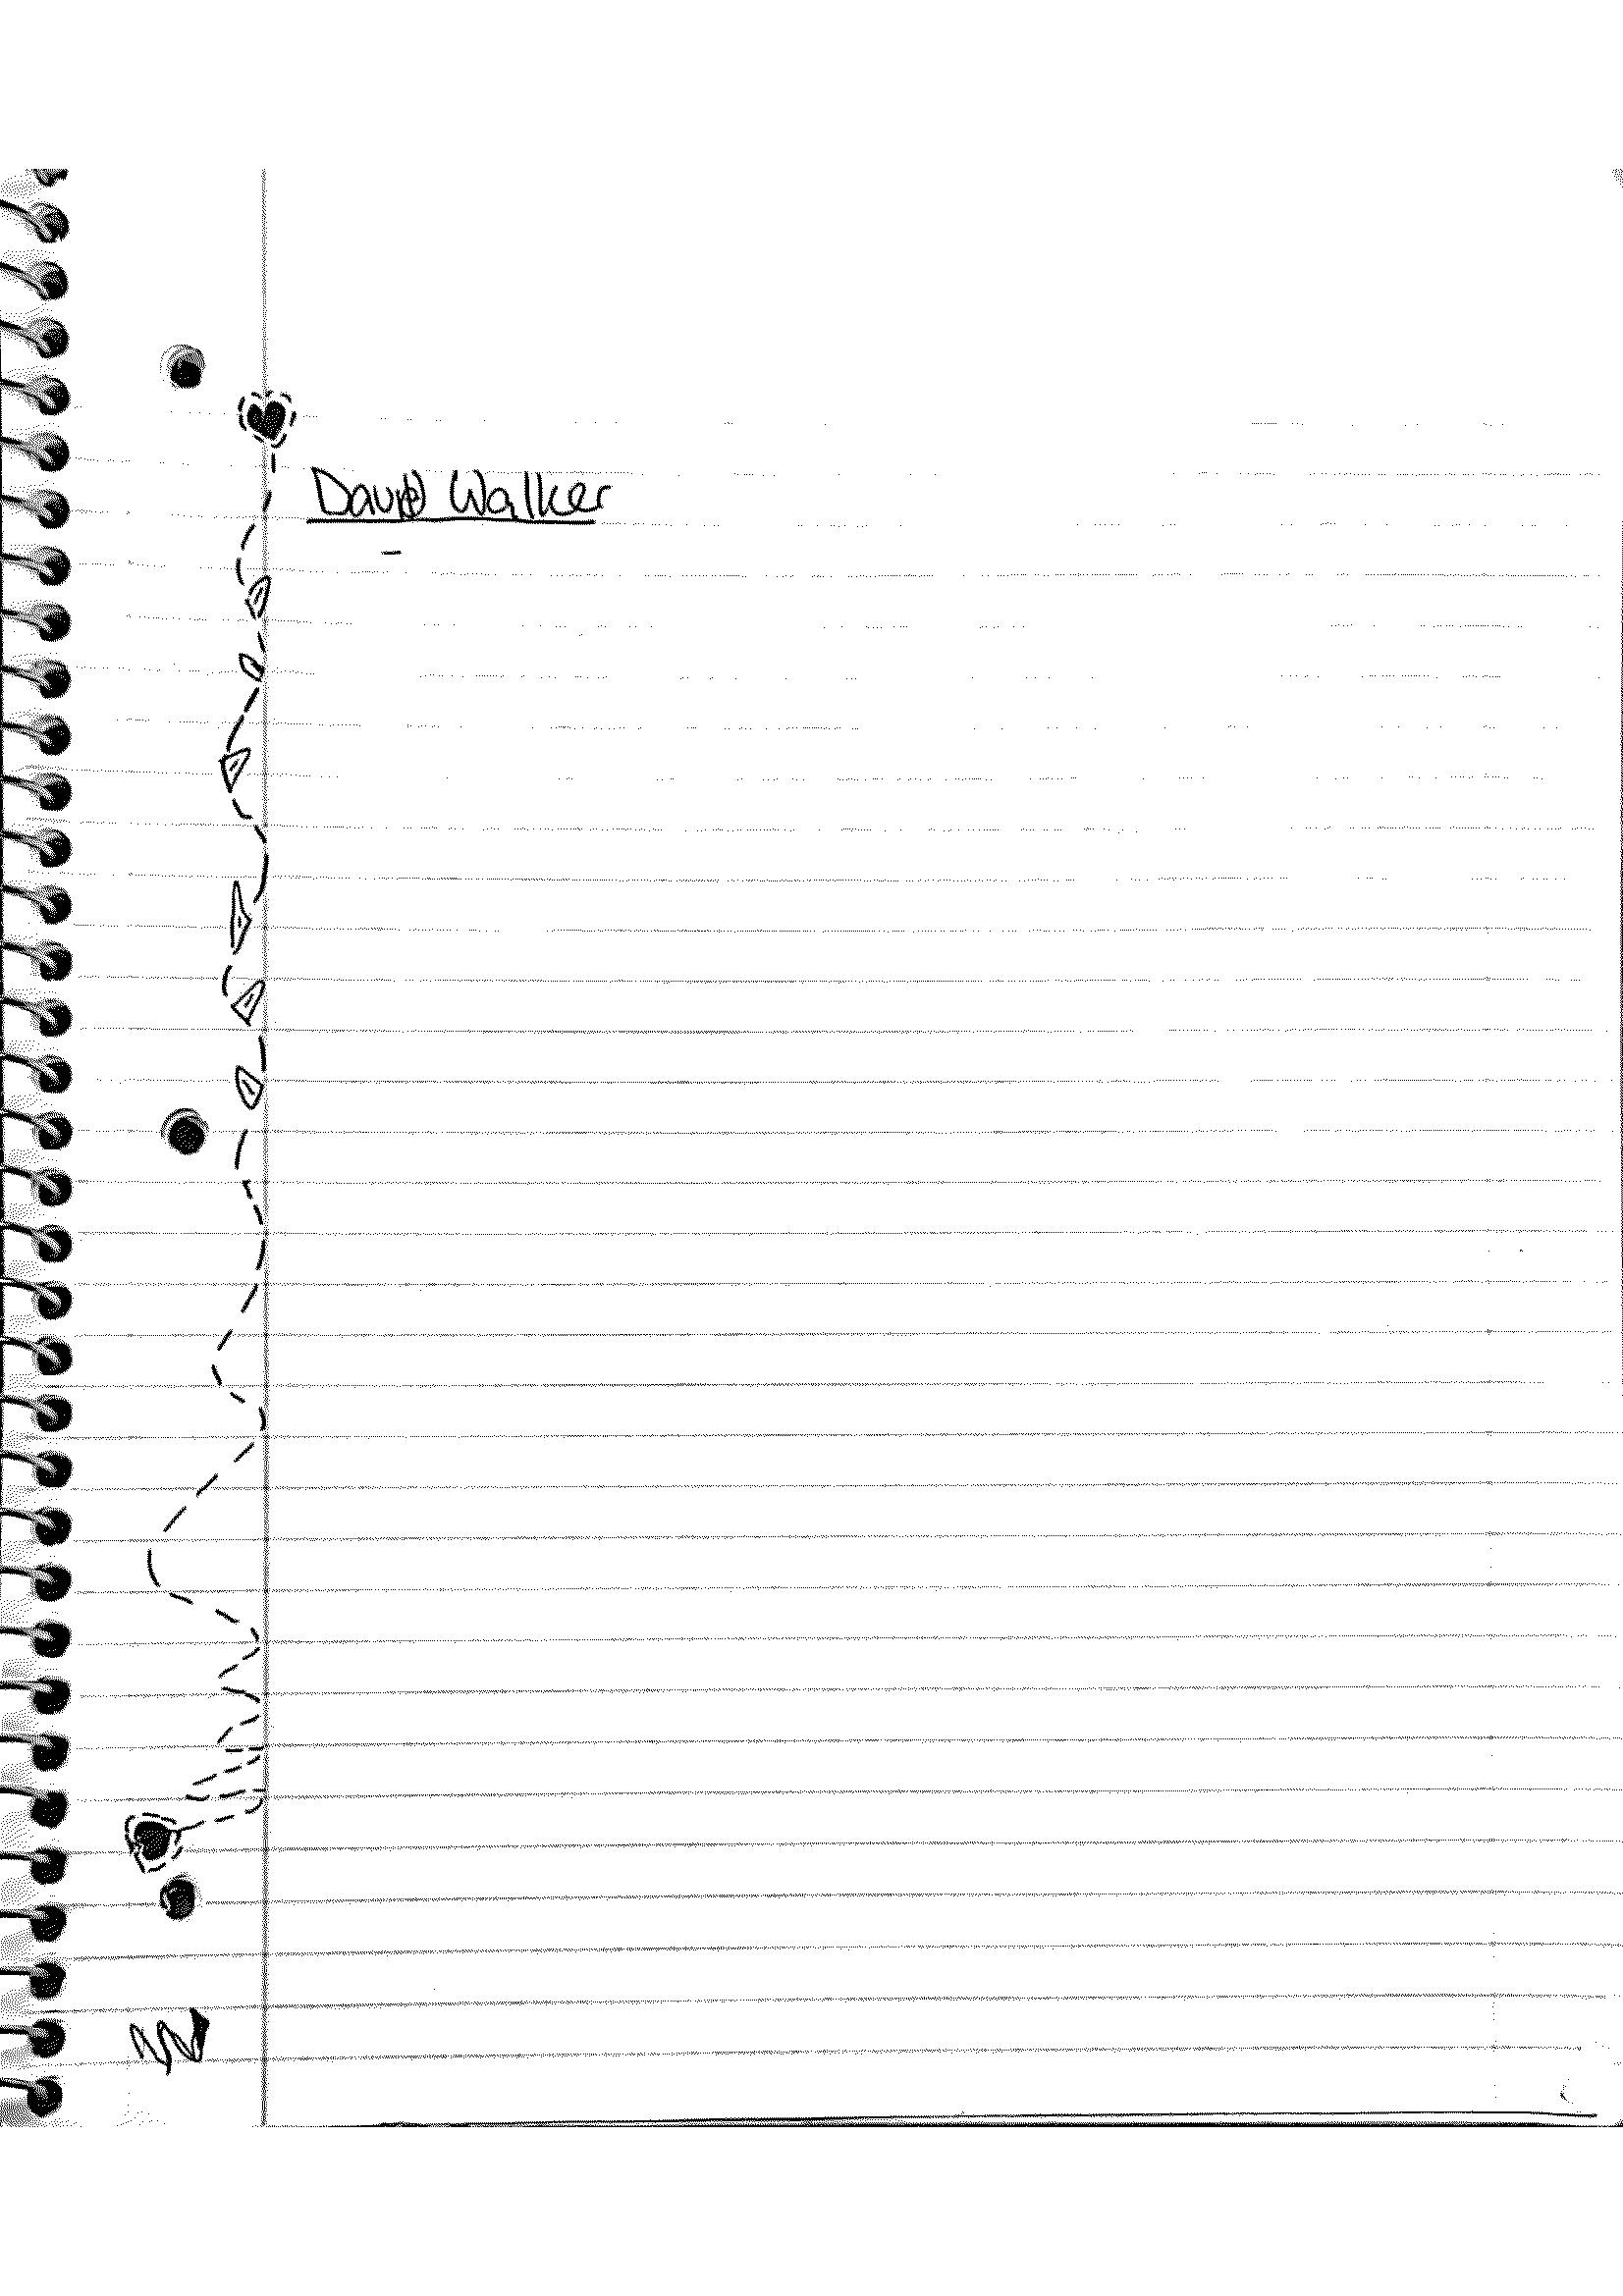 David Walker
-